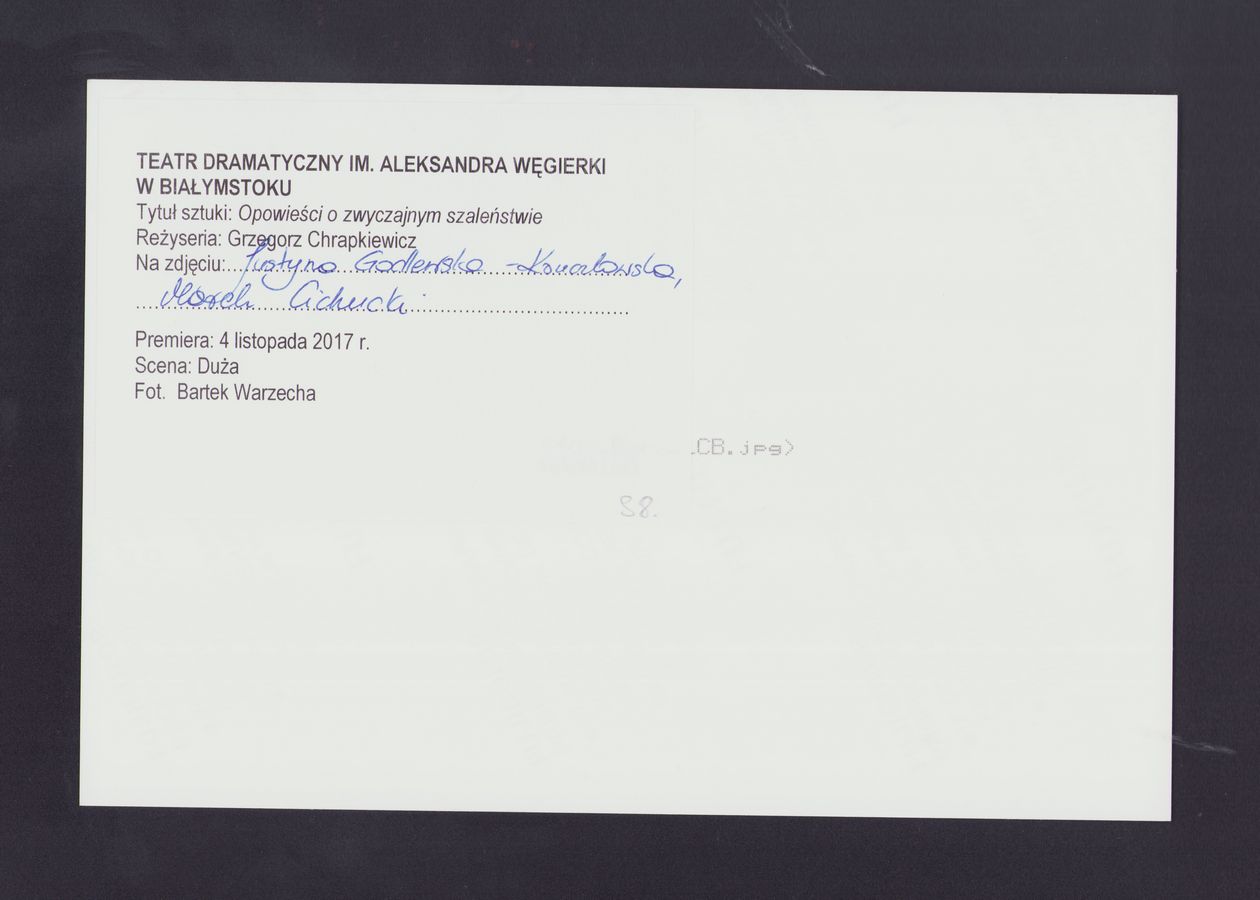 TEATR DRAMATYCZNY IM. ALEKSANDRA WĘGIERKI
W BIAŁYMSTOKU
Tytuł sztuki: Opowieści o zwyczajnym szaleństwie
Reżyseria: Grzegorz Chrapkiewicz
Na zdjęciu: Justyna Godlewska-Kruczkowska,
Marek Cichucki
Premiera: 4 listopada 2017 r.
Scena: Duża
Fot. Bartek Warzecha
CB.jpg)
S8.